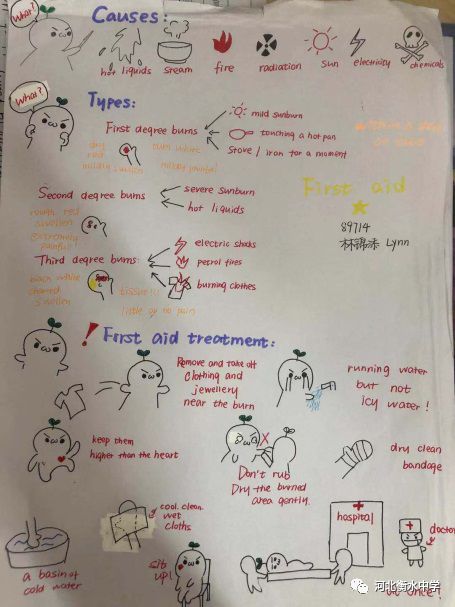 What?
Causes:
hot liquids
steam
fire
radiation
sun
electricity
chemicals
What?
Types:
First degree burns
mild sunburn
touching a hot pan
Stove / iron for a moment
dry
red
mildly swollen
turn white
mildly painful
within a day
or two
Second degree burns
severe sunburn
hot liquids
rough red
swollen
extremely
painful!
First aid
89714
林锦添 Lynn
Third degree burns:
electric shocks
petrol fires
burning clothes
black white
charred
swollen
tissue!!!
little or no pain
! First aid treatment:
Remove and take off
clothing and
jewellery
near the burn
running water
but not
icy water!
keep them
higher than the heart
Don't rub
Dry the burned
area gently.
dry clean
bandage
a basin of
cold water
cool. clean.
wet
cloths
sit
up!
hospital
doctor
at once!
河北衡水中学